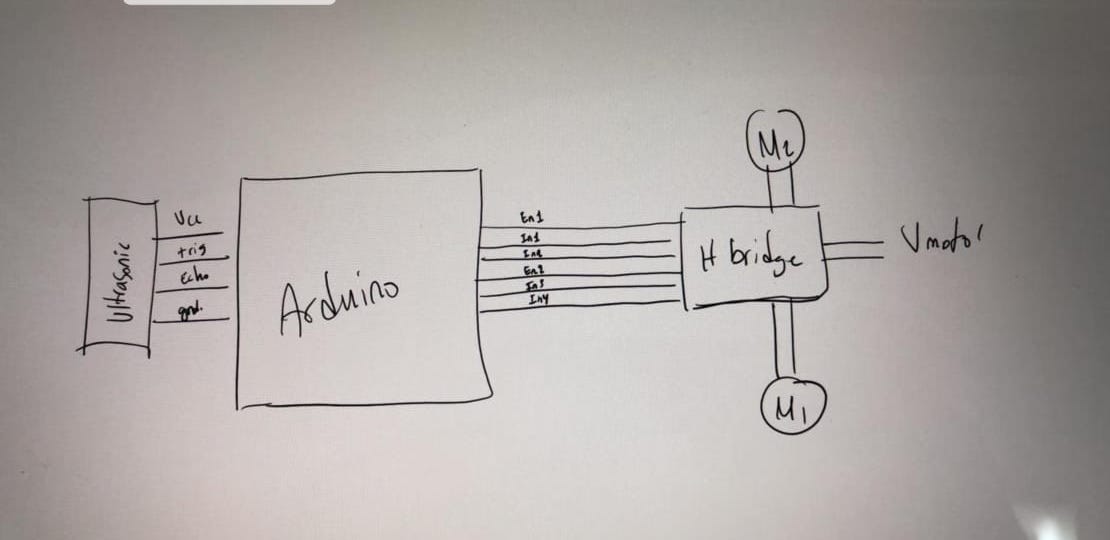 Ultrasonic
Vcc
trig
Echo
gnd.
Arduino
En1
In1
In2
En2
In3
In4
H bridge
M2
M1
Vmotor